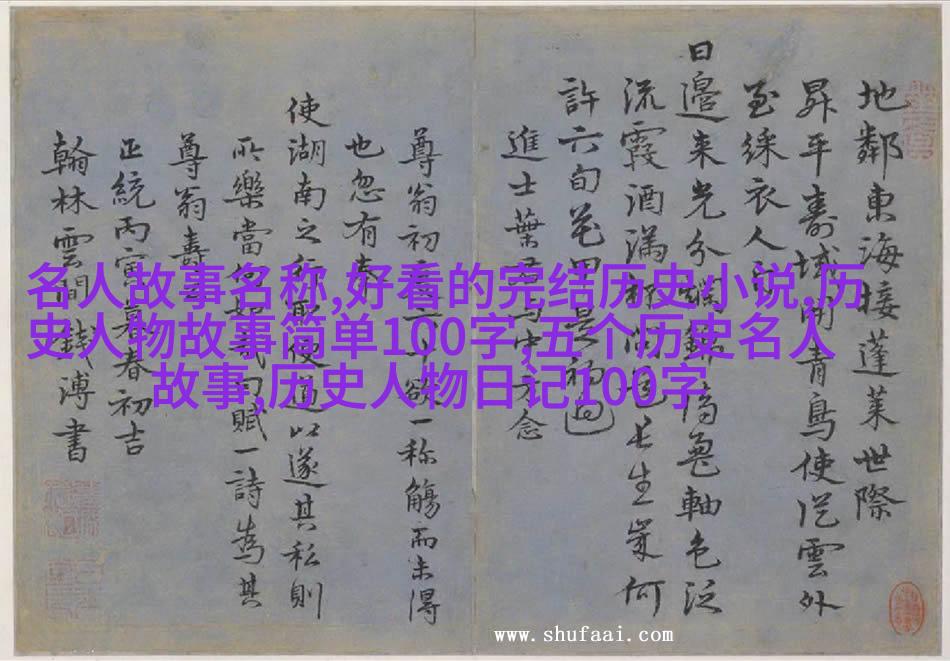 地鄰東海接蓬萊世際
昇平壽域開青鳥使從雲外
至綵衣人
日邊来光分 軸色泛
流霞酒滿 長生 何
許六旬花甲是初
進士葉 中方念
尊翁初 欲一称觴而未得
也忽有奉
使湖南之行 便道以遂其私則
所樂當 賦一詩為其
尊翁壽云
正統丙寅暮春初吉
翰林雲間錢溥書
名人故事名称,好看的完结历史小说,历
史人物故事简单100字,五个历史名人
故事,历史人物日记100字
www.shufaai.com